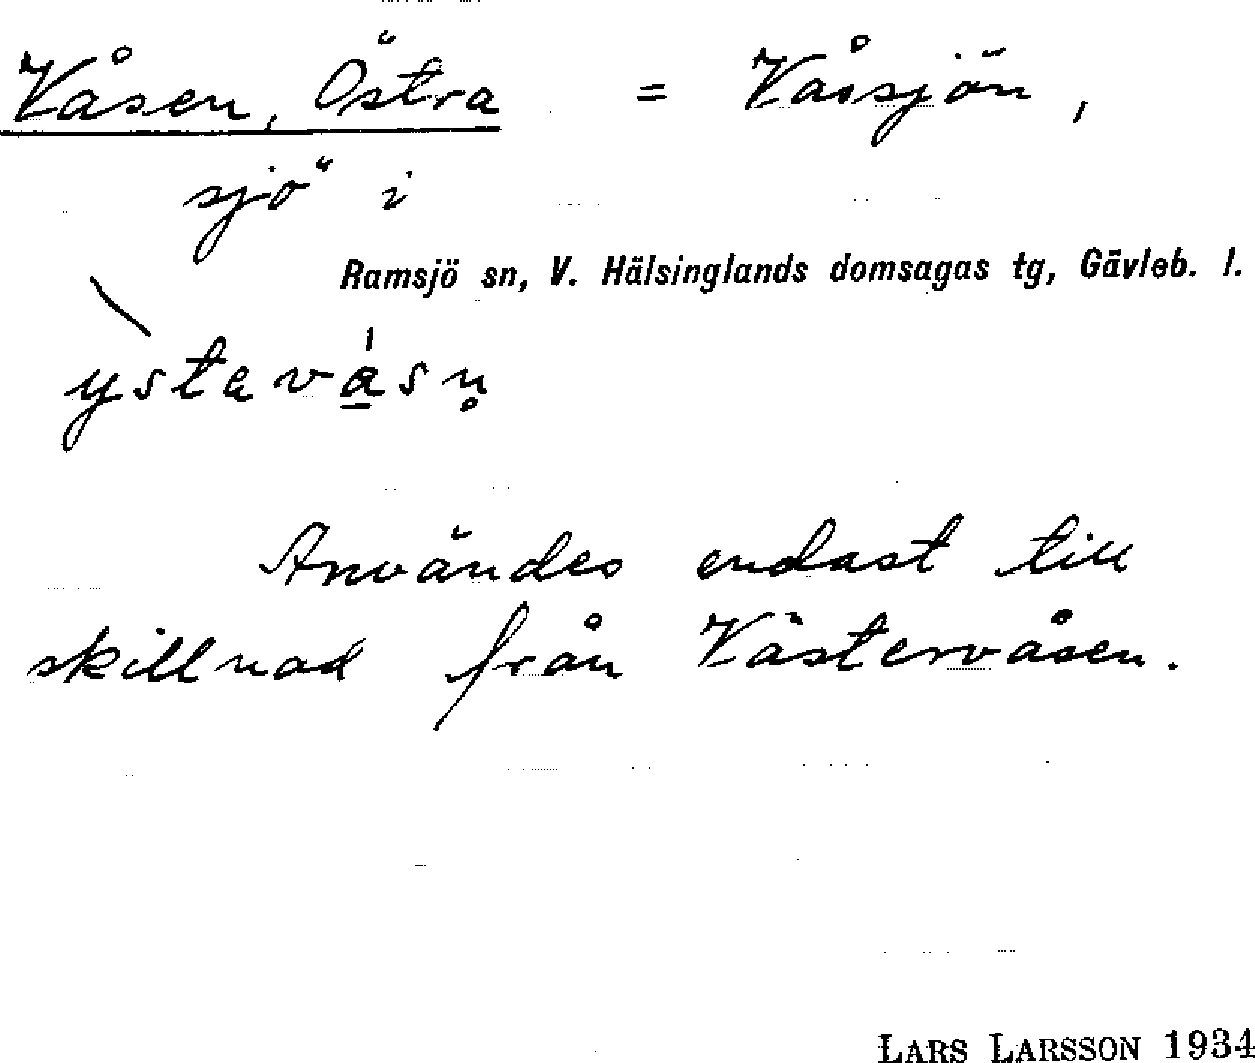 Våsen, Östra = Våssjön,
sjö i
Ramsjö sn, V. Hälsinglands domsagas tg, Gävleb. l.
ỳstavá̱sn̥
Användes endast till
skillnad från Västervåsen.
LARS LARSSON 1934